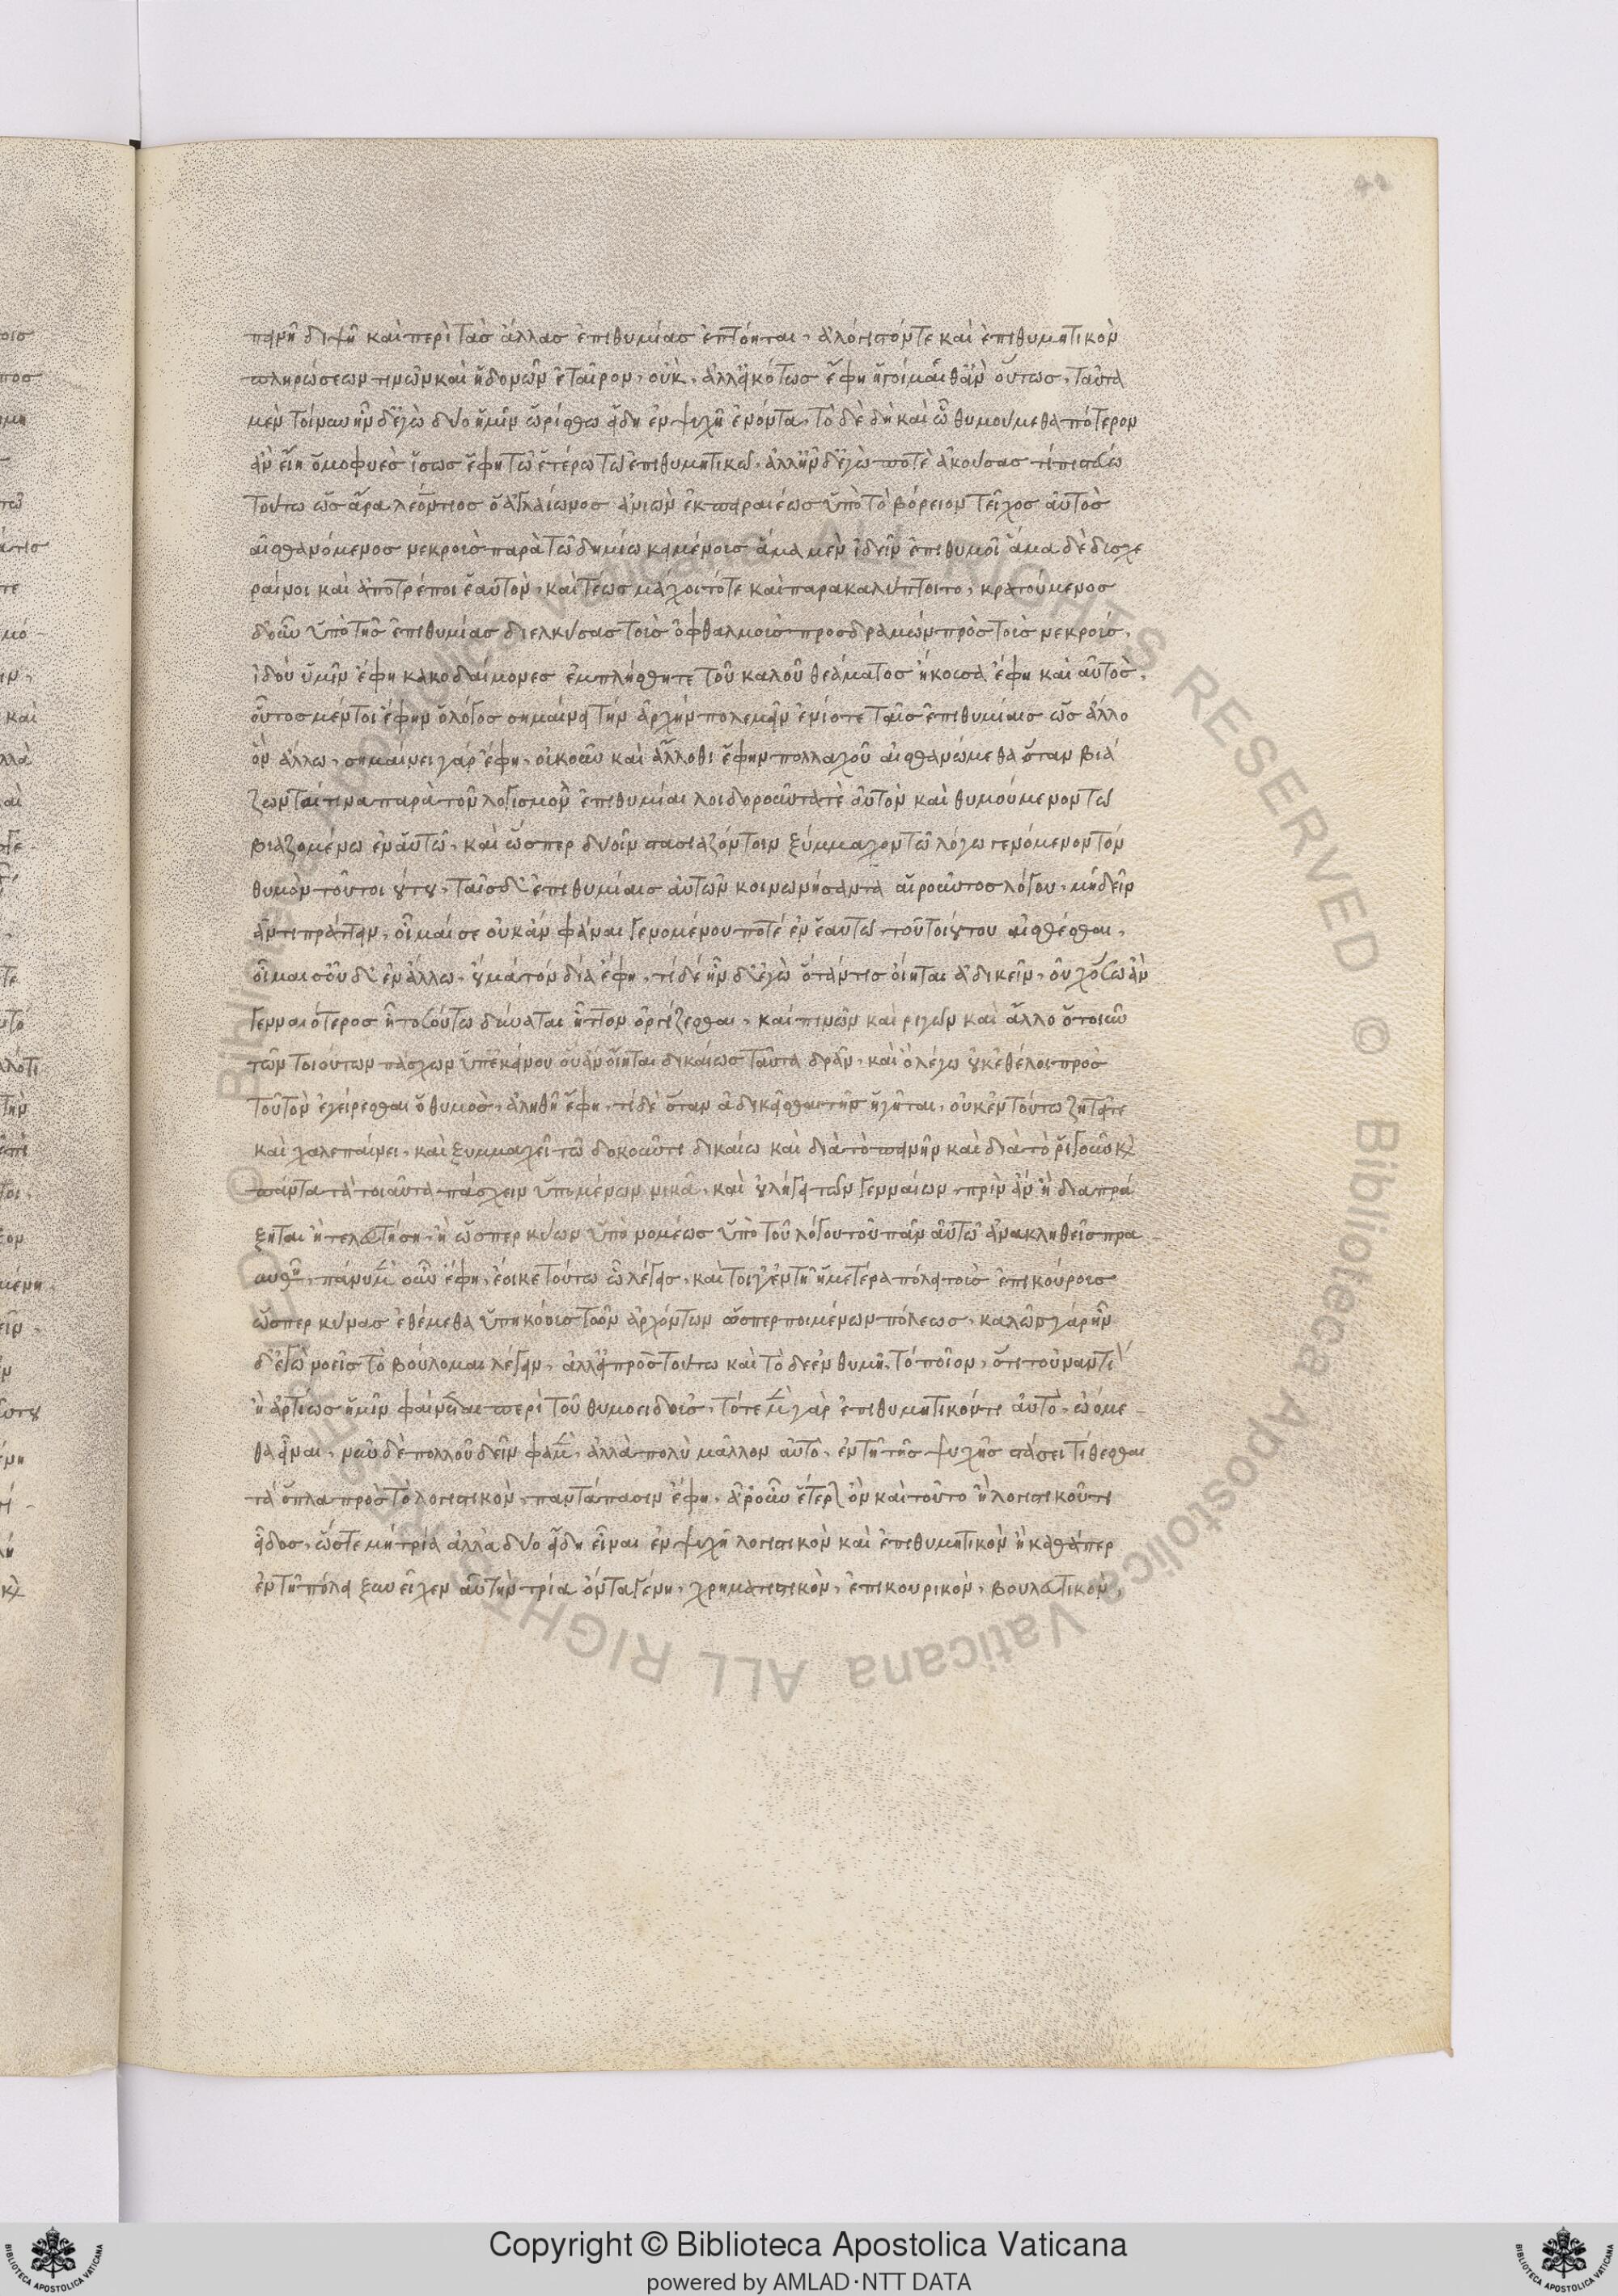 πεινῆ διψῆ καὶ περὶ τὰσ ἄλλασ ἐπιθυμίασ ἐπτόηται, ἀλόγιστόντε καὶ ἐπιθυμητικὸν
πληρώσεων τινῶν καὶ ἡδονῶν ἑταῖρον, οὐκ, ἀλλεἰκότωσ ἔφη ἡγοίμεθἂν οὕτωσ, ταῦτα
μὲν τοίνυν ἦν δἐγὼ δύο ἡμῖν ὡρίσθω εἴδη ἐν ψυχῆ ἐνόντα, τὸ δὲ δὴ καὶ ὧ θυμούμεθα πότερον
ἂν εἴη ὁμοφυὲσ ἴσωσ ἔφη τῶ ἑτέρω τῶ ἐπιθυμητικῶ, ἀλλἦν δἐγὼ ποτὲ ἀκούσασ τὶ πιστεύω
τούτω ὡσ ἄρα λεόντιοσ ὁ ἀγλαίωνοσ ἀνιὼν ἐκ πειραιέωσ ὑπὸ τὸ βόρειον τεῖχοσ αὐτὸσ
αἰσθανόμενοσ νεκροὺσ παρὰ τῶ δημίω κειμένουσ ἅμα μὲν ἰδεῖν ἐπιθυμοῖ ἅμα δὲ δυσχε
ραίνοι καὶ ἀποτρέποι ἑαυτὸν, καὶ τέωσ μάχοιτότε καὶ παρακαλύπτοιτο, κρατούμενοσ
δοὖν ὑπὸ τῆσ ἐπιθυμίασ διελκύσασ τοὺσ ὀφθαλμοὺσ προσδραμὼν πρὸσ τοὺσ νεκρούσ,
ἰδού ὑμῖν ἔφη κακοδαίμονεσ ἐμπλήσθητε τοῦ καλοῦ θεάματοσ ἤκουσα ἔφη καὶ αὐτὸσ,
οὗτοσ μέντοι ἔφην ὁ λόγοσ σημαίνει τὴν ἀρχὴν πολεμεῖν ἐνίοτε ταῖσ ἐπιθυμίαισ ὡσ ἄλλο
ὂν ἄλλω, σημαίνει γάρ ἔφη, οὐκοῦν καὶ ἄλλοθι ἔφην πολλαχοῦ αἰσθανώμεθα ὅταν βιά
ζωνταί τινα παρὰ τὸν λογισμὸν ἐπιθυμίαι λοιδοροῦντάτὲ αὐτὸν καὶ θυμούμενον τῶ
βιαζομένω ἐν αὑτῶ, καὶ ὥσπερ δυοῖν στασιαζόντοιν ξύμμαχον τῶ λόγω γενόμενον τόν
θυμὸν τοῦ τοιούτου, ταῖσ δἐπιθυμίαισ αὐτῶν κοινωνήσαντα αἱροῦντοσ λόγου, μὴ δεῖν
ἀντιπράττειν, οἶμαί σε οὐκ ἄν φάναι γενομένου ποτέ ἐν ἑαυτῶ τοῦ τοιούτου αἰσθέσθαι,
οἶμαι σοῦν δ' ἐν ἄλλω, οὐ μὰ τόν δία ἔφη, τί δέ ἦν δ' ἐγὼ ὅτάν τισ οἴηται ἀδικεῖν, οὐχ ὅσω ἂν
γενναιότεροσ ἦ τοσούτω δύναται ἧττον ὀργίζεσθαι, καὶ πεινῶν καὶ ριγῶν καὶ ἄλλο ὁτιοῦν
τῶν τοιούτων πάσχων ὑπ' ἐκείνου ὃν ἂν οἴηται δικαίωσ ταῦτα δρᾶν, καὶ ὃ λέγω οὐκ ἐθέλει πρὸσ
τοῦτον ἐγείρεσθαι ὁ θυμοσ, ἀληθῆ ἔφη, τί δὲ ὅταν ἀδικεῖσθαι τὴν ἡγῆται, οὐκ ἐν τούτω ζητεῖτε
καὶ χαλεπαίνει, καὶ ξυμμαχεῖ τῶ δοκοῦντι δικαίω καὶ διὰ τὸ πεινῆν καὶ διὰ τὸ ῥιγοῦν κὶ
πάντα τὰ τοιαῦτα πάσχειν ὑπομένων νικᾶ, καὶ οὐ λήγει τῶν γενναίων, πρὶν ἂν ἢ διαπρά
ξηται ἢ τελευτήση, ἢ ὥσπερ κύων ὑπὸ νομέωσ ὑπὸ τοῦ λόγου τοῦ παρ αὐτῶ ἀνακληθεὶσ πρα
υνθῆ, πάνυ μὲν οὖν ἔφη, ἔοικε τούτω ὧ λέγεισ, καὶ τοιγ' ἐν τῆ ἡμετέρα πόλει τοὺσ ἐπικούρουσ
ὥσπερ κύνασ ἐθέμεθα ὑπηκόουσ τῶν ἀρχόντων ὥσπερ ποιμένων πόλεωσ, καλῶσ γάρ ἦν
δ' ἐγὼ νοεῖσ τὸ βούλομαι λέγειν, ἀλλ' εἰ πρὸσ τούτω καὶ τὸ δε ἐνθυμῆ, τό ποῖον, ὅτι τοὐναντί
ἢ ἀρτίωσ ἡμῖν φαίνεται περὶ τοῦ θυμοειδοῦσ, τότε μὲν γὰρ ἐπιθυμητικόν τι αὐτὸ, ὠόμε
θα εἶναι, νῦν δὲ πολλοῦ δεῖν φαμὲν, ἀλλὰ πολὺ μᾶλλον αὐτὸ, ἐν τῆ τῆσ ψυχῆσ στάσει τίθεσθαι
τὰ ὅπλα πρὸσ τὸ λογιστικὸν, παντάπασιν ἔφη, ἆρ' οὖν ἕτερον ὂν καὶ τοῦτο ἢ λογιστικοῦ τι
εἶδοσ, ὥστε μὴ τρία ἀλλὰ δύο εἴδη εἶναι ἐν ψυχῆ λογιστικὸν καὶ ἐπιθυμητικὸν ἢ καθάπερ
ἐν τῆ πόλει ξυνεῖχεν αὐτὴν τρία ὄντα γένη, χρηματιστικὸν, ἐπικουρικὸν, βουλευτικόν,
Copyright © Biblioteca Apostolica Vaticana
powered by AMLAD·NTT DATA